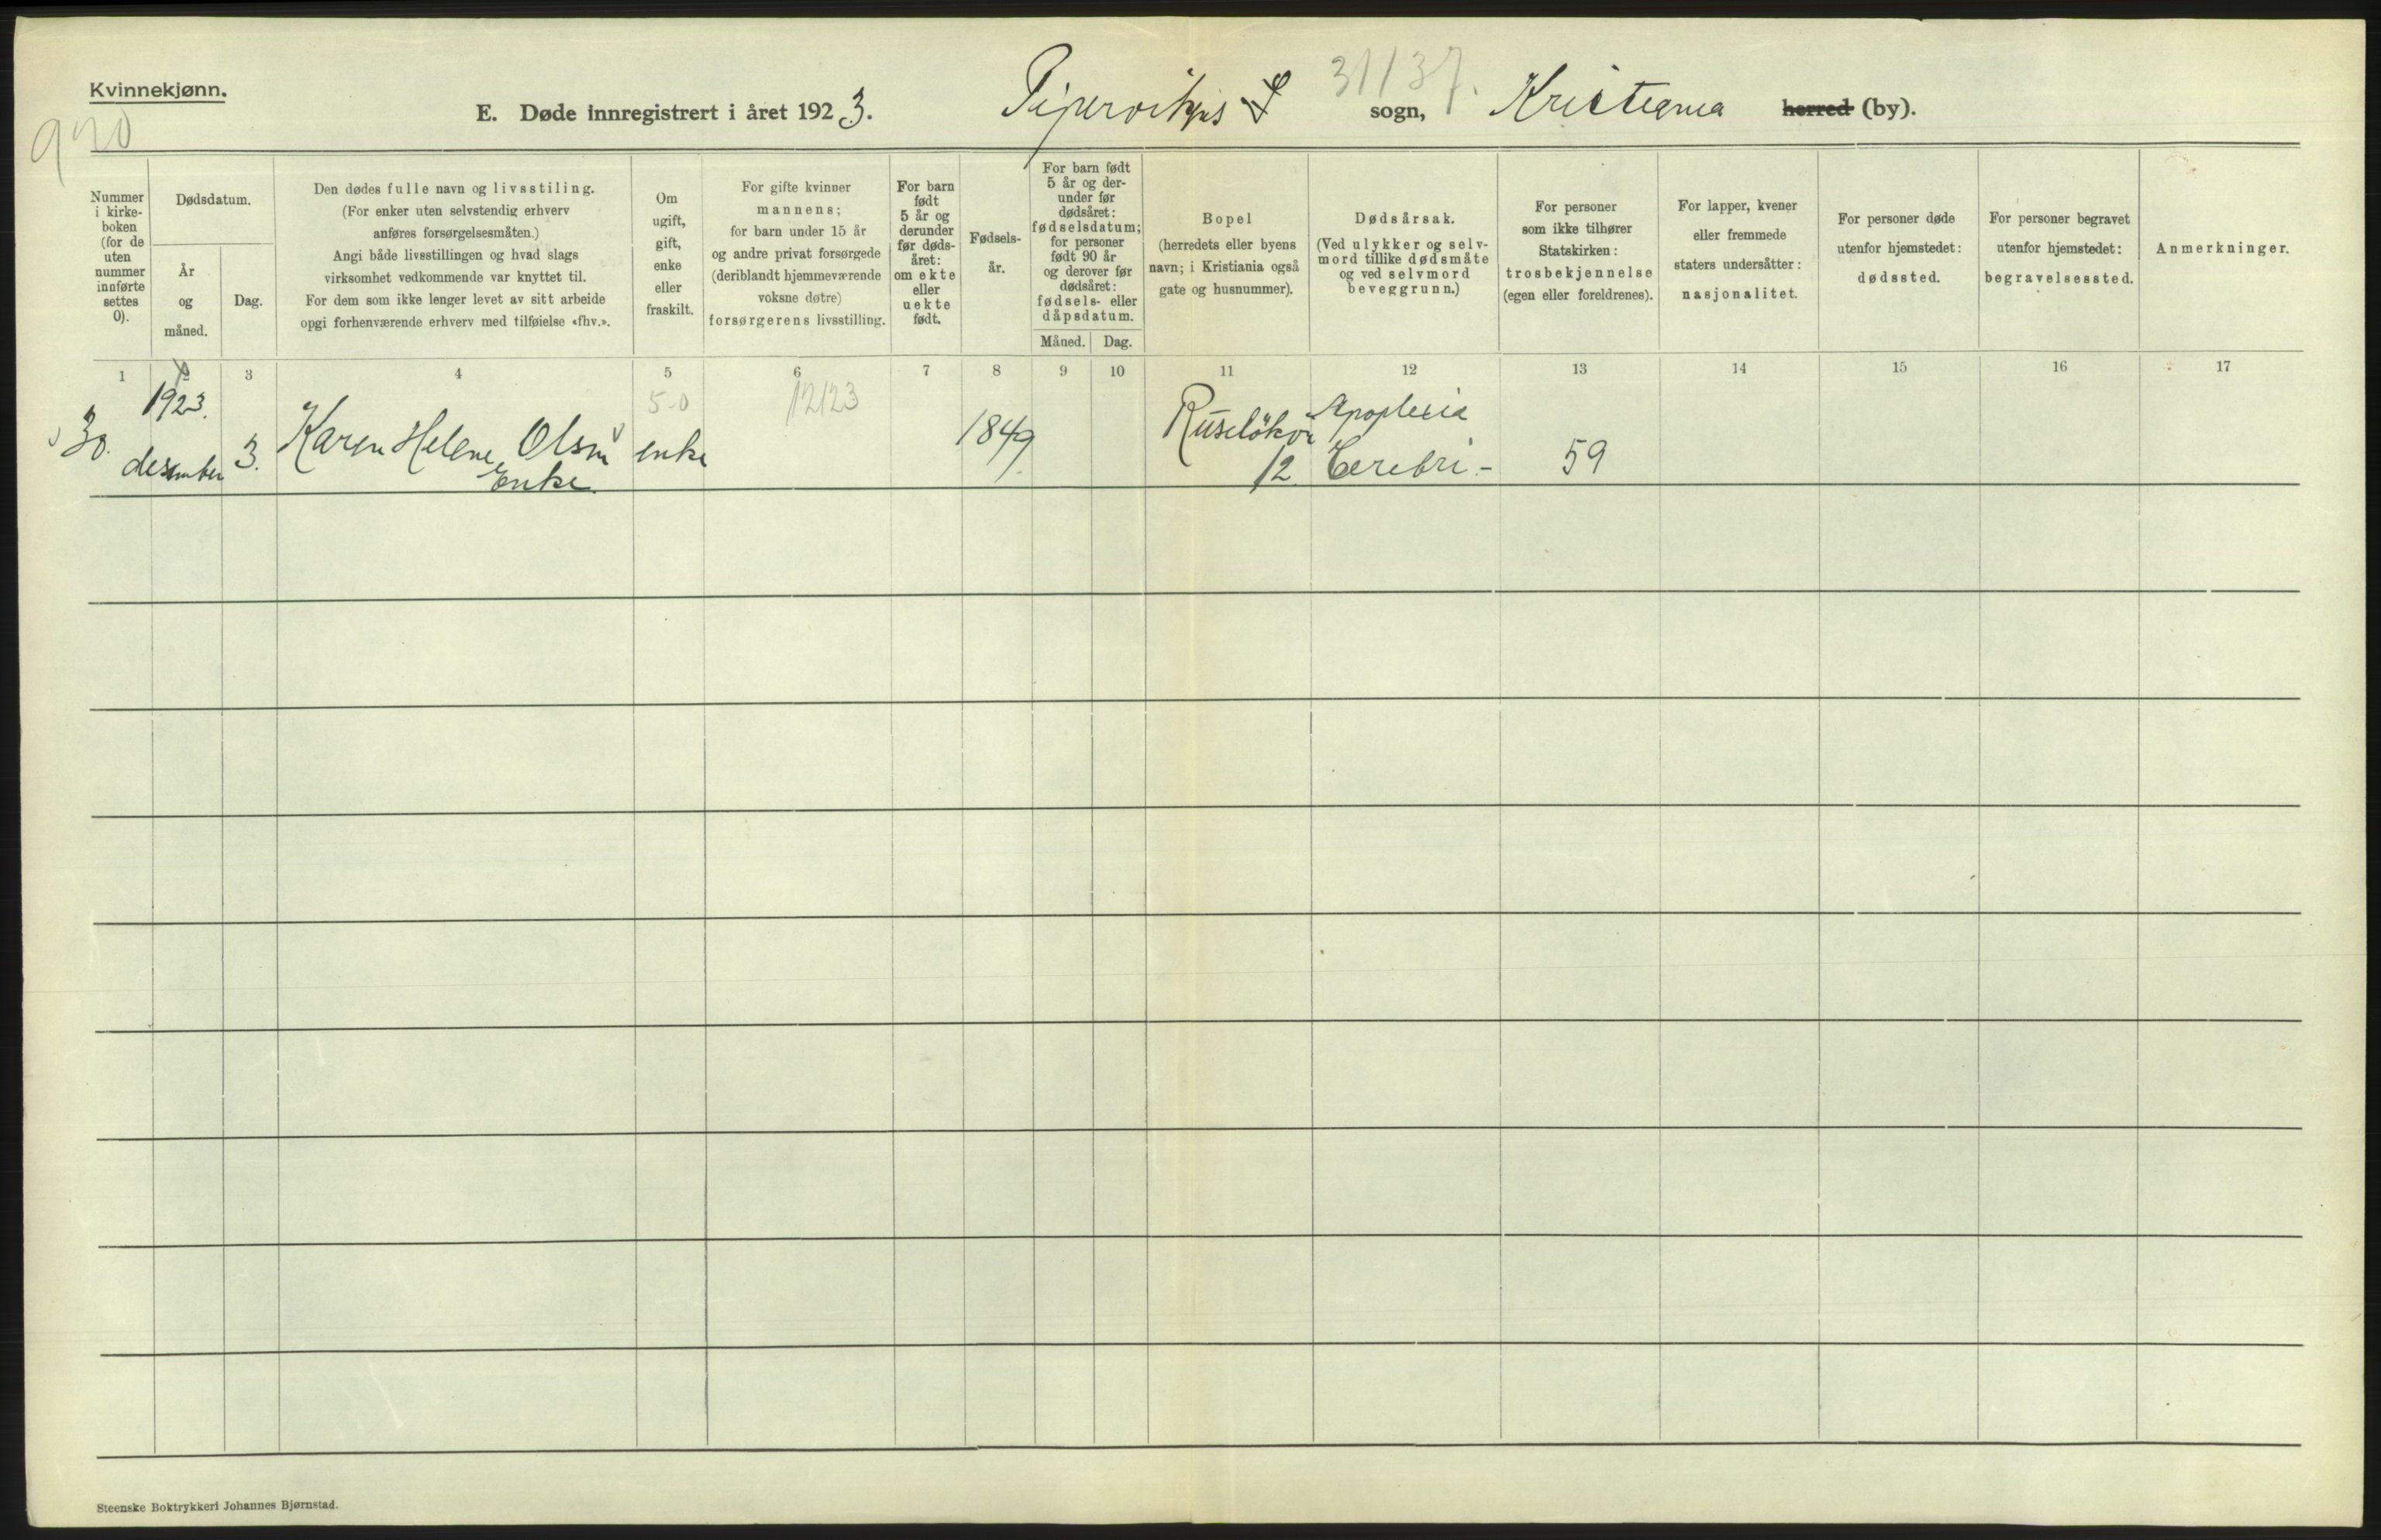 Kvinnekjønn.
E. Døde innregistrert i året 1923.
31/37.
sogn, Kristiania herred (by).
Nummer i kirke-boken (for de uten nummer innførte settes 0).
Dødsdatum.
År og måned.
Dag.
Den dødes fulle navn og livsstiling.
(For enker uten selvstendig erhverv
anføres forsørgelsesmåten.)
Angi både livsstillingen og hvad slags
virksomhet vedkommende var knyttet til.
For dem som ikke lenger levet av sitt arbeide
opgi forhenværende erhverv med tilføielse «fhv.».
Om
ugift,
gift,
enke
eller
fraskilt.
For gifte kvinner
mannens;
for barn under 15 år
og andre privat forsørgede
(deriblandt hjemmeværende
voksne døtre)
forsørgerens livsstilling.
For barn
født
5 år og
derunder
før døds-
året:
om ekte
eller
uekte
født.
Fødsels-
år.
For barn født
5 år og der-
under før
dødsåret:
fødselsdatum;
for personer
født 90 år
og derover før
dødsåret:
fødsels- eller
dåpsdatum.
Måned. Dag.
Bopel
(herredets eller byens
navn; i Kristiania også
gate og husnummer).
Dødsårsak.
(Ved ulykker og selv-
mord tillike dødsmåte
og ved selvmord
beveggrunn.)
For personer
som ikke tilhører
Statskirken:
trosbekjennelse
(egen eller foreldrenes).
For lapper, kvener
eller fremmede
staters undersåtter:
nasjonalitet.
For personer døde
utenfor hjemstedet:
dødssted.
For personer begravet
utenfor hjemstedet:
begravelsessted.
Anmerkninger.
1 3 4 5 6 7 8 9 10 11 12 13 14 15 16 17
1923. 5-0 12/23
30. desember 3. Karen Helene Olsen enke 1849. 12. Apoplexia
Enke. Cerebri.- 59
Steenske Boktrykkeri Johannes Bjørnstad.